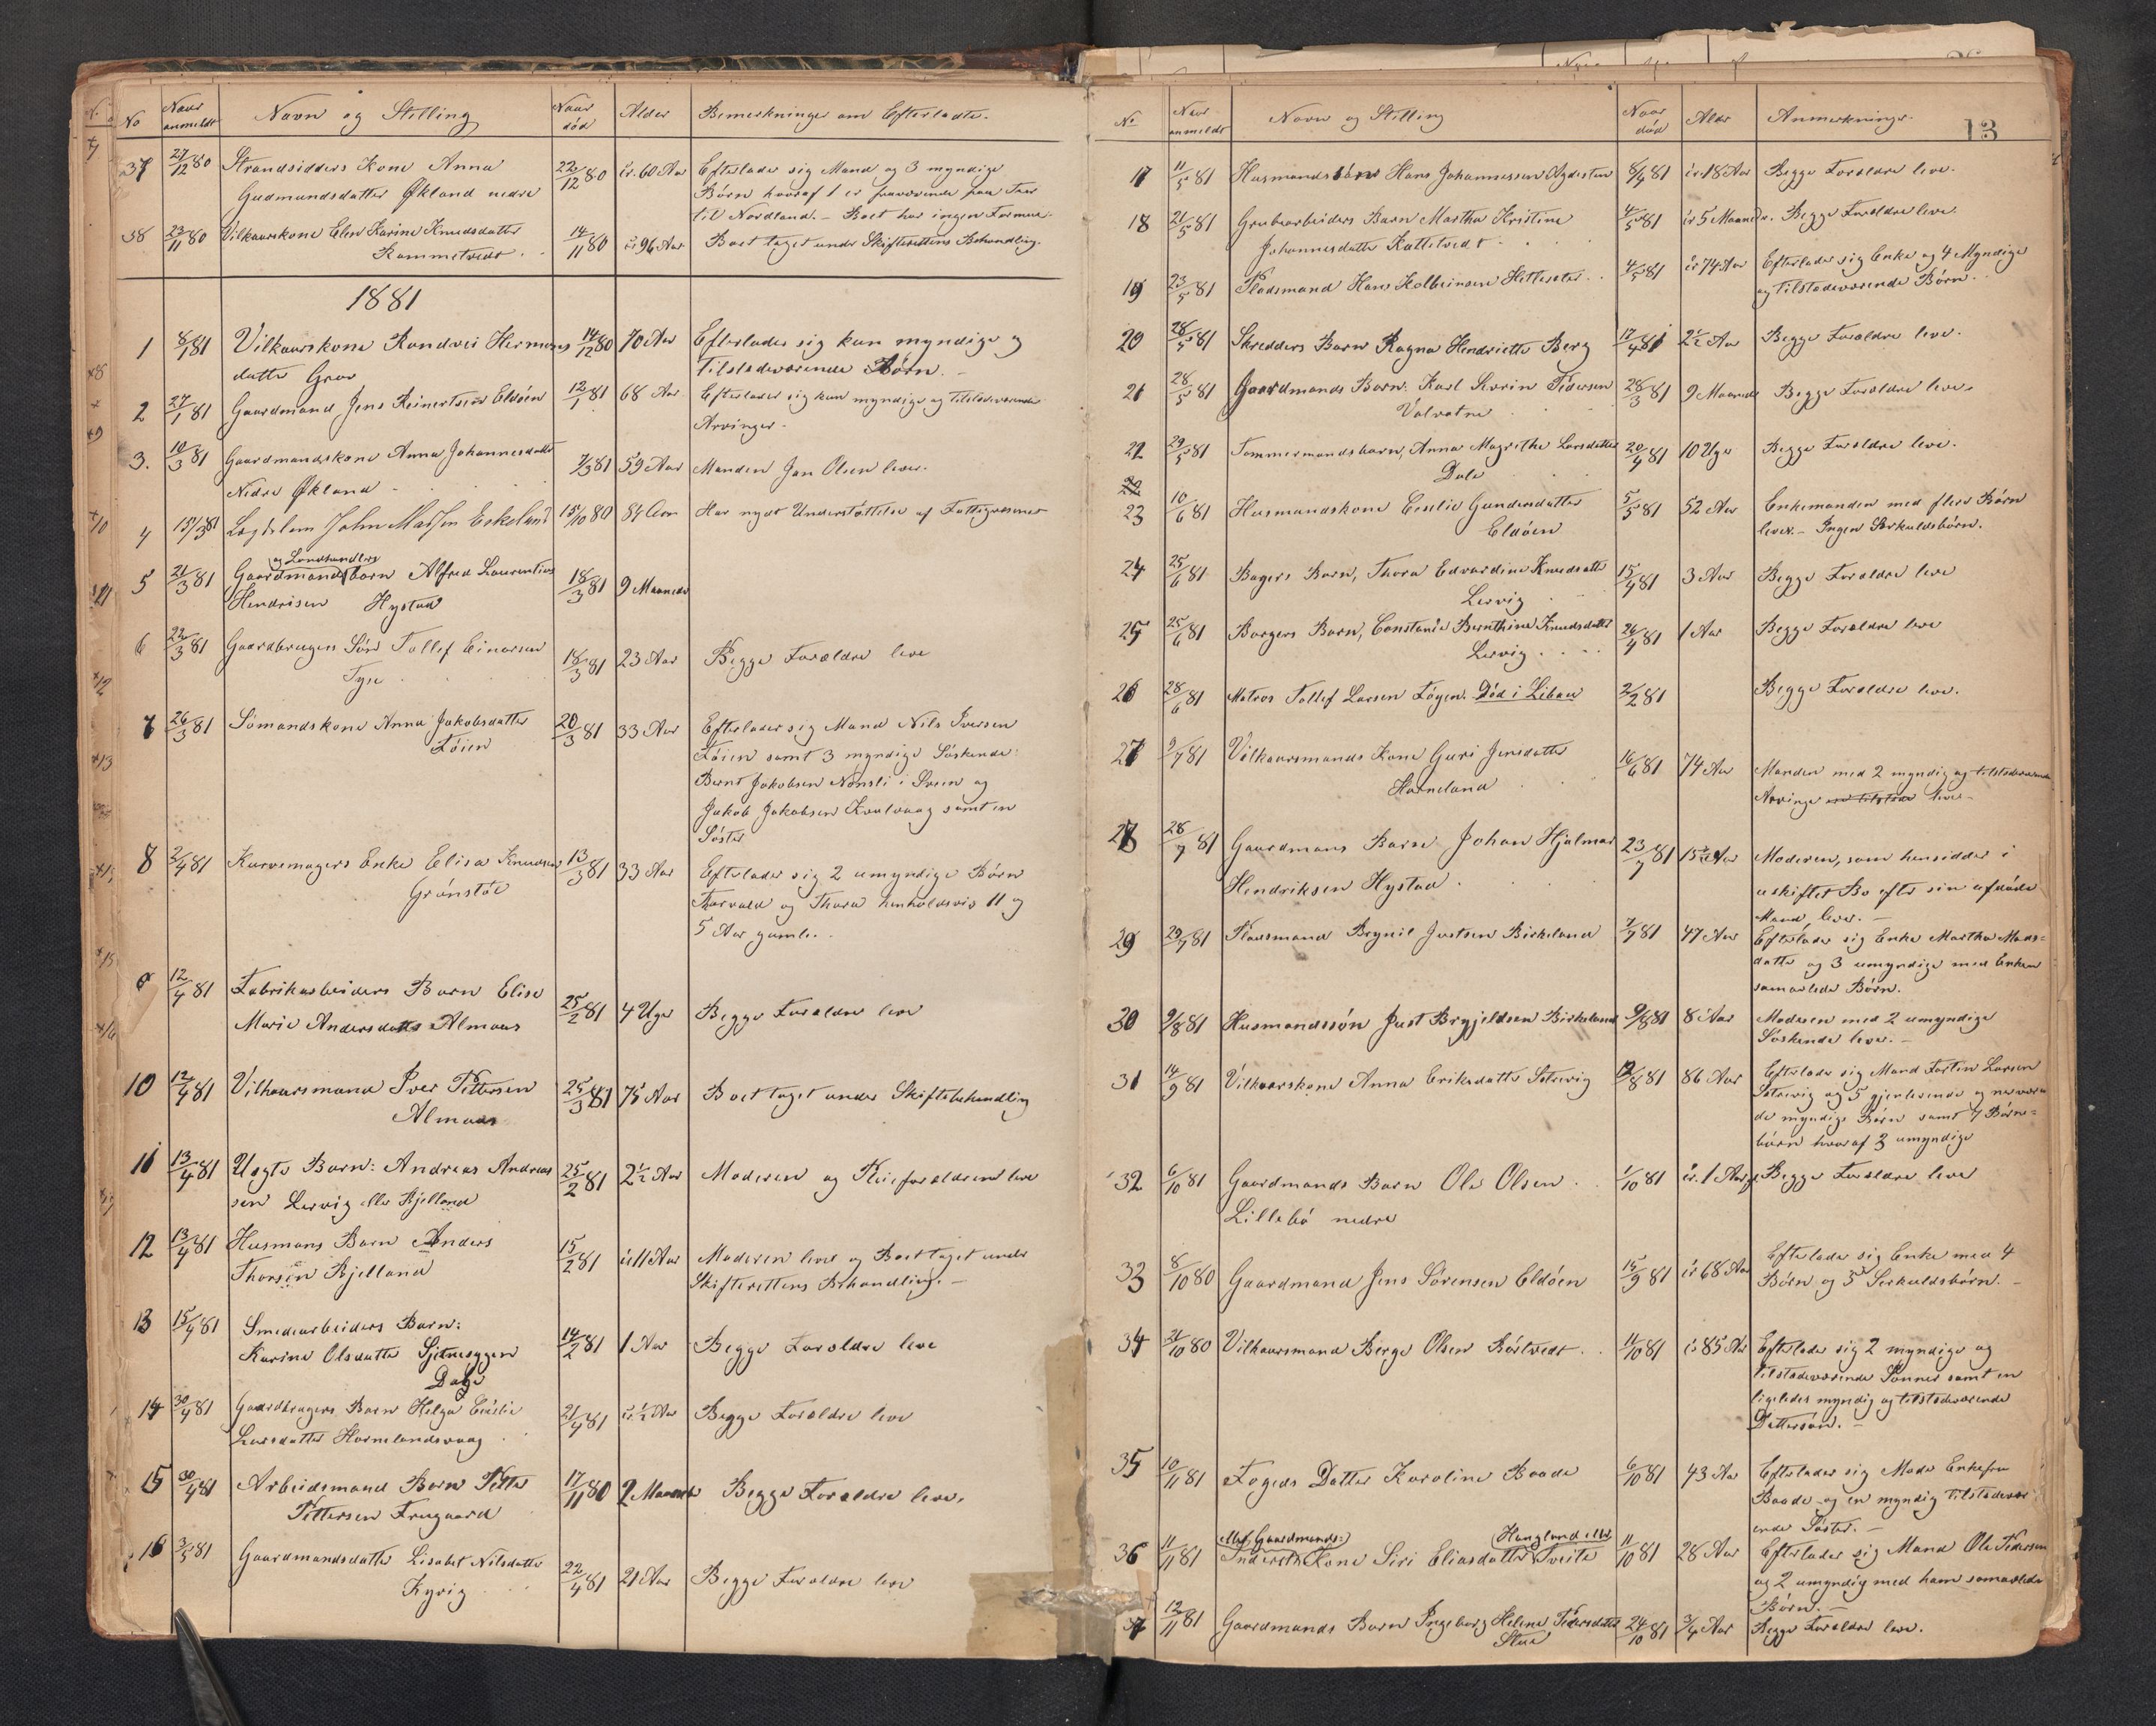 No Naar anmeldt Navn og Stilling Naar död Alder Bemerkninger om Efterladte.
37 27/12 80 Strandsidders Kone Anna 22/12 80 ir. 60 Aar Efterlader sig Mand og 3 myndige
Gudmundsdatter Økland nedre Börn hvoraf 1 er fraværende paa
til Nordland. – Boet har ingen Formue.
38 23/11 80 Vilkaarskone Elen Karine Knudsdatter 14/11 80 ir 96 Aar Boet taget under Skifterettens Behandling.
1881
1 8/1 81 Vilkaarskone Randvei Hermens 14/12 80 70 Aar Efterlader sig kun myndige og
datter Grov tilstedeværende Börn. –
2 27/1 81 Gaardmand Jens Reinertsen Eldöen 12/1 81 68 Aar Efterlader sig kun myndige og tilstedeværende
Arvinger –
3. 10/3 81 Gaardmandskone Anna Johannesdatter 7/3 81 59 Aar Manden Jan Olsen lever.
Nedre Økland –
4 15/3 81 Lægdslem John Eskeland 15/10 80 84 Aar Har nydt Understöttelse af Fattigvæsenet
og Landhandlers
5 21/3 81 Gaardmandsbarn Alfred Laurentius 18/3 81 9 Maaneder
Hendrisen Hystad
6 22/3 81 Gaardbrugers Sön Tollef Einarsen 18/3 81 23 Aar Begge Forældre leve
Tyse
7 26/3 81 Sömandskone Anna Jakobsdatter 20/3 81 33 Aar Efterlader sig Mand Nils Iversen
Föien Föien samt 3 myndige Söskende:
Bernt Jakobsen Nonsli i Sveen og
Jakob Jakobsen Kvalvaag samt en
Söster
8 2/4 81 Kurvemagers Enke Elisa Knudsen 13/3 81 33 Aar Efterlader sig 2 umyndige Börn
Grönstöe Thorvald og Thora henholdsvis 11 og
5 Aar gamle. –
9 12/4 81 Fabrikarbeiders Barn Elise 25/2 81 4 Uger Begge Forældre leve
Marie Andersdatter Almaas
10 12/4 81 Vilkaarsmand Iver Pettersen 25/3 81 75 Aar Boet taget under Skiftebehandling
Almaas
11 13/4 81 Uægte Barn: Andreas Andreas 25/2 81 2½ Aar Moderen og Pleieforældrene leve
sen Lervig eller Kjelland
12 13/4 81 Husmans Barn Anders 15/2 81 ir 11 Aar Moderen lever og Boet taget under
Thorsen Kjelland Skifterettens Behandling. –
13 15/4 81 Smedearbeiders Barn: 14/2 81 1 Aar Begge Forældre leve
Karine Olsdatter
Dale
14 30/4 81 Gaardbrugers Barn Helga Cecilie 21/4 81 ir ½ Aar Begge Forældre leve
Larsdatter Hornelandsvaag
15 30/4 81 Arbeidsmand Barn Petter 17/11 80 2 Maaneder Begge Forældre leve.
Pettersen Frugaard
16 3/5 81 Gaardmandsdatter Lisabet Nilsdatter 22/4 81 21 Aar Begge Forældre leve
Kyvig
13
No Naar anmeldt Navn og Stilling Naar död Alder Anmerkninger.
17 11/5 81 Husmandssöns Hans Johannessen Agdesten 8/4 81 ir 18 Aar Begge Forældre leve.
18 21/5 81 Grubearbeiders Barn Martha Kristine 4/5 81 ir 5 Maaneder. Begge Forældre leve.
Johannesdatter Kattetvedt
19 23/5 81 Pladsmand Hans Kolbeinsen Hilleseter 4/5 81 ir 74 Aar Efterlader sig Enke og 4 Myndige
og tilstedeværende Börn.
20 28/5 81 Skredders Barn Ragna Hendriette Berg 17/4 81 2½ Aar Begge Forældre leve.
21 28/5 81 Gaardmands Barn. Karl Severin Pedersen 28/3 81 9 Maaneder Begge Forældre leve.
Valvatne
22 29/5 81 Tømmermandsbarn, Anna Magrethe Larsdatter 20/4 81 10 Uger Begge Forældre leve.
Dale
23 10/6 81 Husmandskone Ceselie Gundersdatter 5/5 81 52 Aar Enkemanden med flere Börn
Eldöen lever. – Ingen Særkuldsbörn.
24 25/6 81 Bagers Barn, Thora Edvardine Knudsdatter 15/4 81 3 Aar Begge Forældre leve
Lervig
25 25/6 81 Borgers Barn, Constanse Bernthine Knudsdatter 26/4 81 1 Aar Begge Forældre leve
Lervig
26 28/6 81 Matros Tollef Larsen Föyen. Död i Libau 2/2 81 Begge Forældre leve.
27 9/7 81 Vilkaarsmands Kone Guri Jensdatter 16/6 81 74 Aar Manden med 2 myndig og tilstedeværende
Horneland Arvinge er tilstede leve –
28 28/7 81 Gaardmans Barn Johan Hjalmar 23/7 81 Aar Moderen, som hensidder i
Hendriksen Hystad uskiftet Bo efter sin afdöde
Mand, lever. –
29 29/7 81 Pladsmand Brynil Justsen Birkeland 7/7 81 47 Aar Efterlader sig Enke Martha Mads=
datter og 3 umyndige med Enken
samavlede Börn.
30 9/8 81 Husmandssön Just Brynjeldsen Birkeland 9/8 81 8 Aar Moderen med 2 umyndige
Söskende lever. –
31 14/9 81 Vilkaarskone Anna Eriksdatter Setrevig 12/8 81 86 Aar Efterlader sig Mand Fartin Larsen
Setrevig og 5 gjenlevende og neværen
de myndige Börn samt 7 Börne=
börn hvoraf 3 umyndige
32 6/10 81 Gaardmands Barn Ole Olsen 1/10 81 ir. 1 Aar Begge Forældre leve
Lillebö nedre
33 8/10 80 Gaardmand Jens Sörensen Eldöen 15/9 81 ir 68 Aar Efterlader sig Enke med 4
Börn og 5 Serkuldsbörn. –
34 21/10 80 Vilkaarsmand Berge Olsen Börtvedt 11/10 81 ir 85 Aar Efterlader sig 2 myndige og
tilstedeværende Sönner samt en
ligeledes myndig og tilstedeværende
Dattersön. –
35 10/11 81 Fogeds Datter Karoline Baade 6/10 81 43 Aar Efterlader sig Moder Enkefru
Baade og en myndig tilstedevær
ende Söster. –
eller Gaardmands: Haugland eller
36 11/11 81 Inderste Kone Siri Eliasdatter Tveite 11/10 81 28 Aar Efterlader sig Mand Ole Pedersen
og 2 umyndig med ham samavlede
Börn. –
37 12/11 81 Gaardmands Barn Ingeborg Helene Pedersdatter 24/10 81 3/4 Aar Begge Forældre leve.
Stue